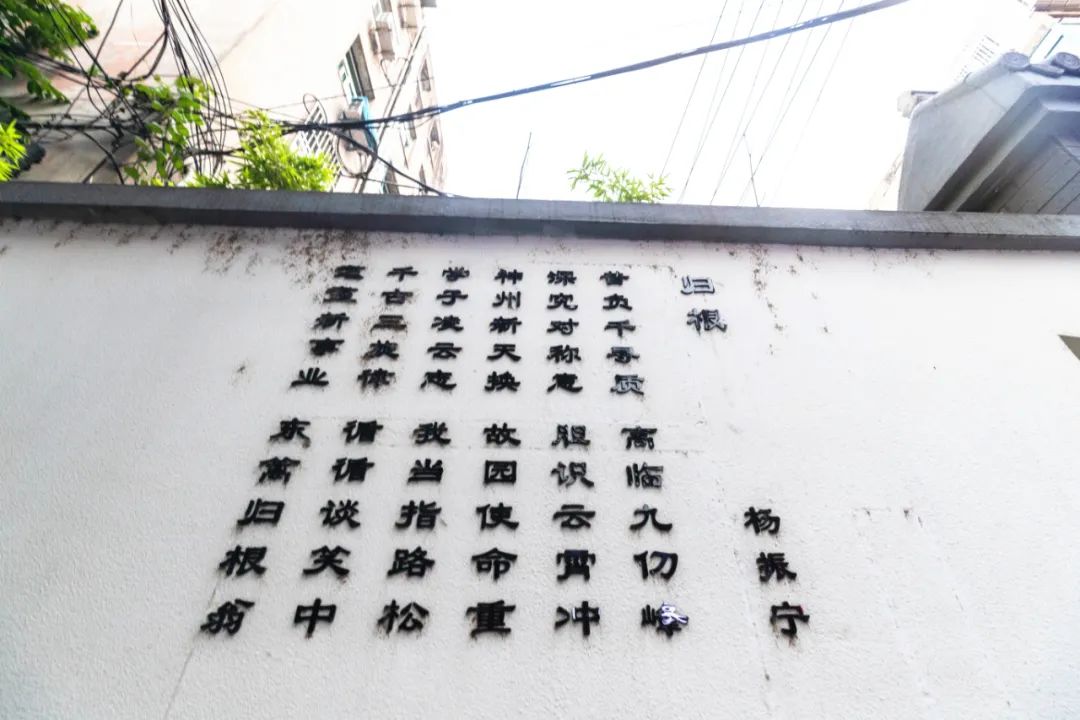 归根
杨振宁
昔负千寻质 高临九仞峰
深究对称意 胆识云霄冲
神州新天换 故园使命重
学子凌云志 我当指路松
千古三旋律 循循谈笑中
新事业 东篱归根翁